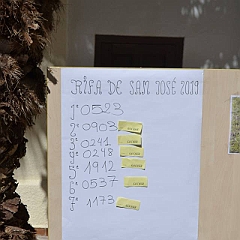 RIFA DE SAN JOSÉ 2019
1º 0523
2º 0903
3º 0241
4º 0248
5º 1912
6º 0537
7º 1173